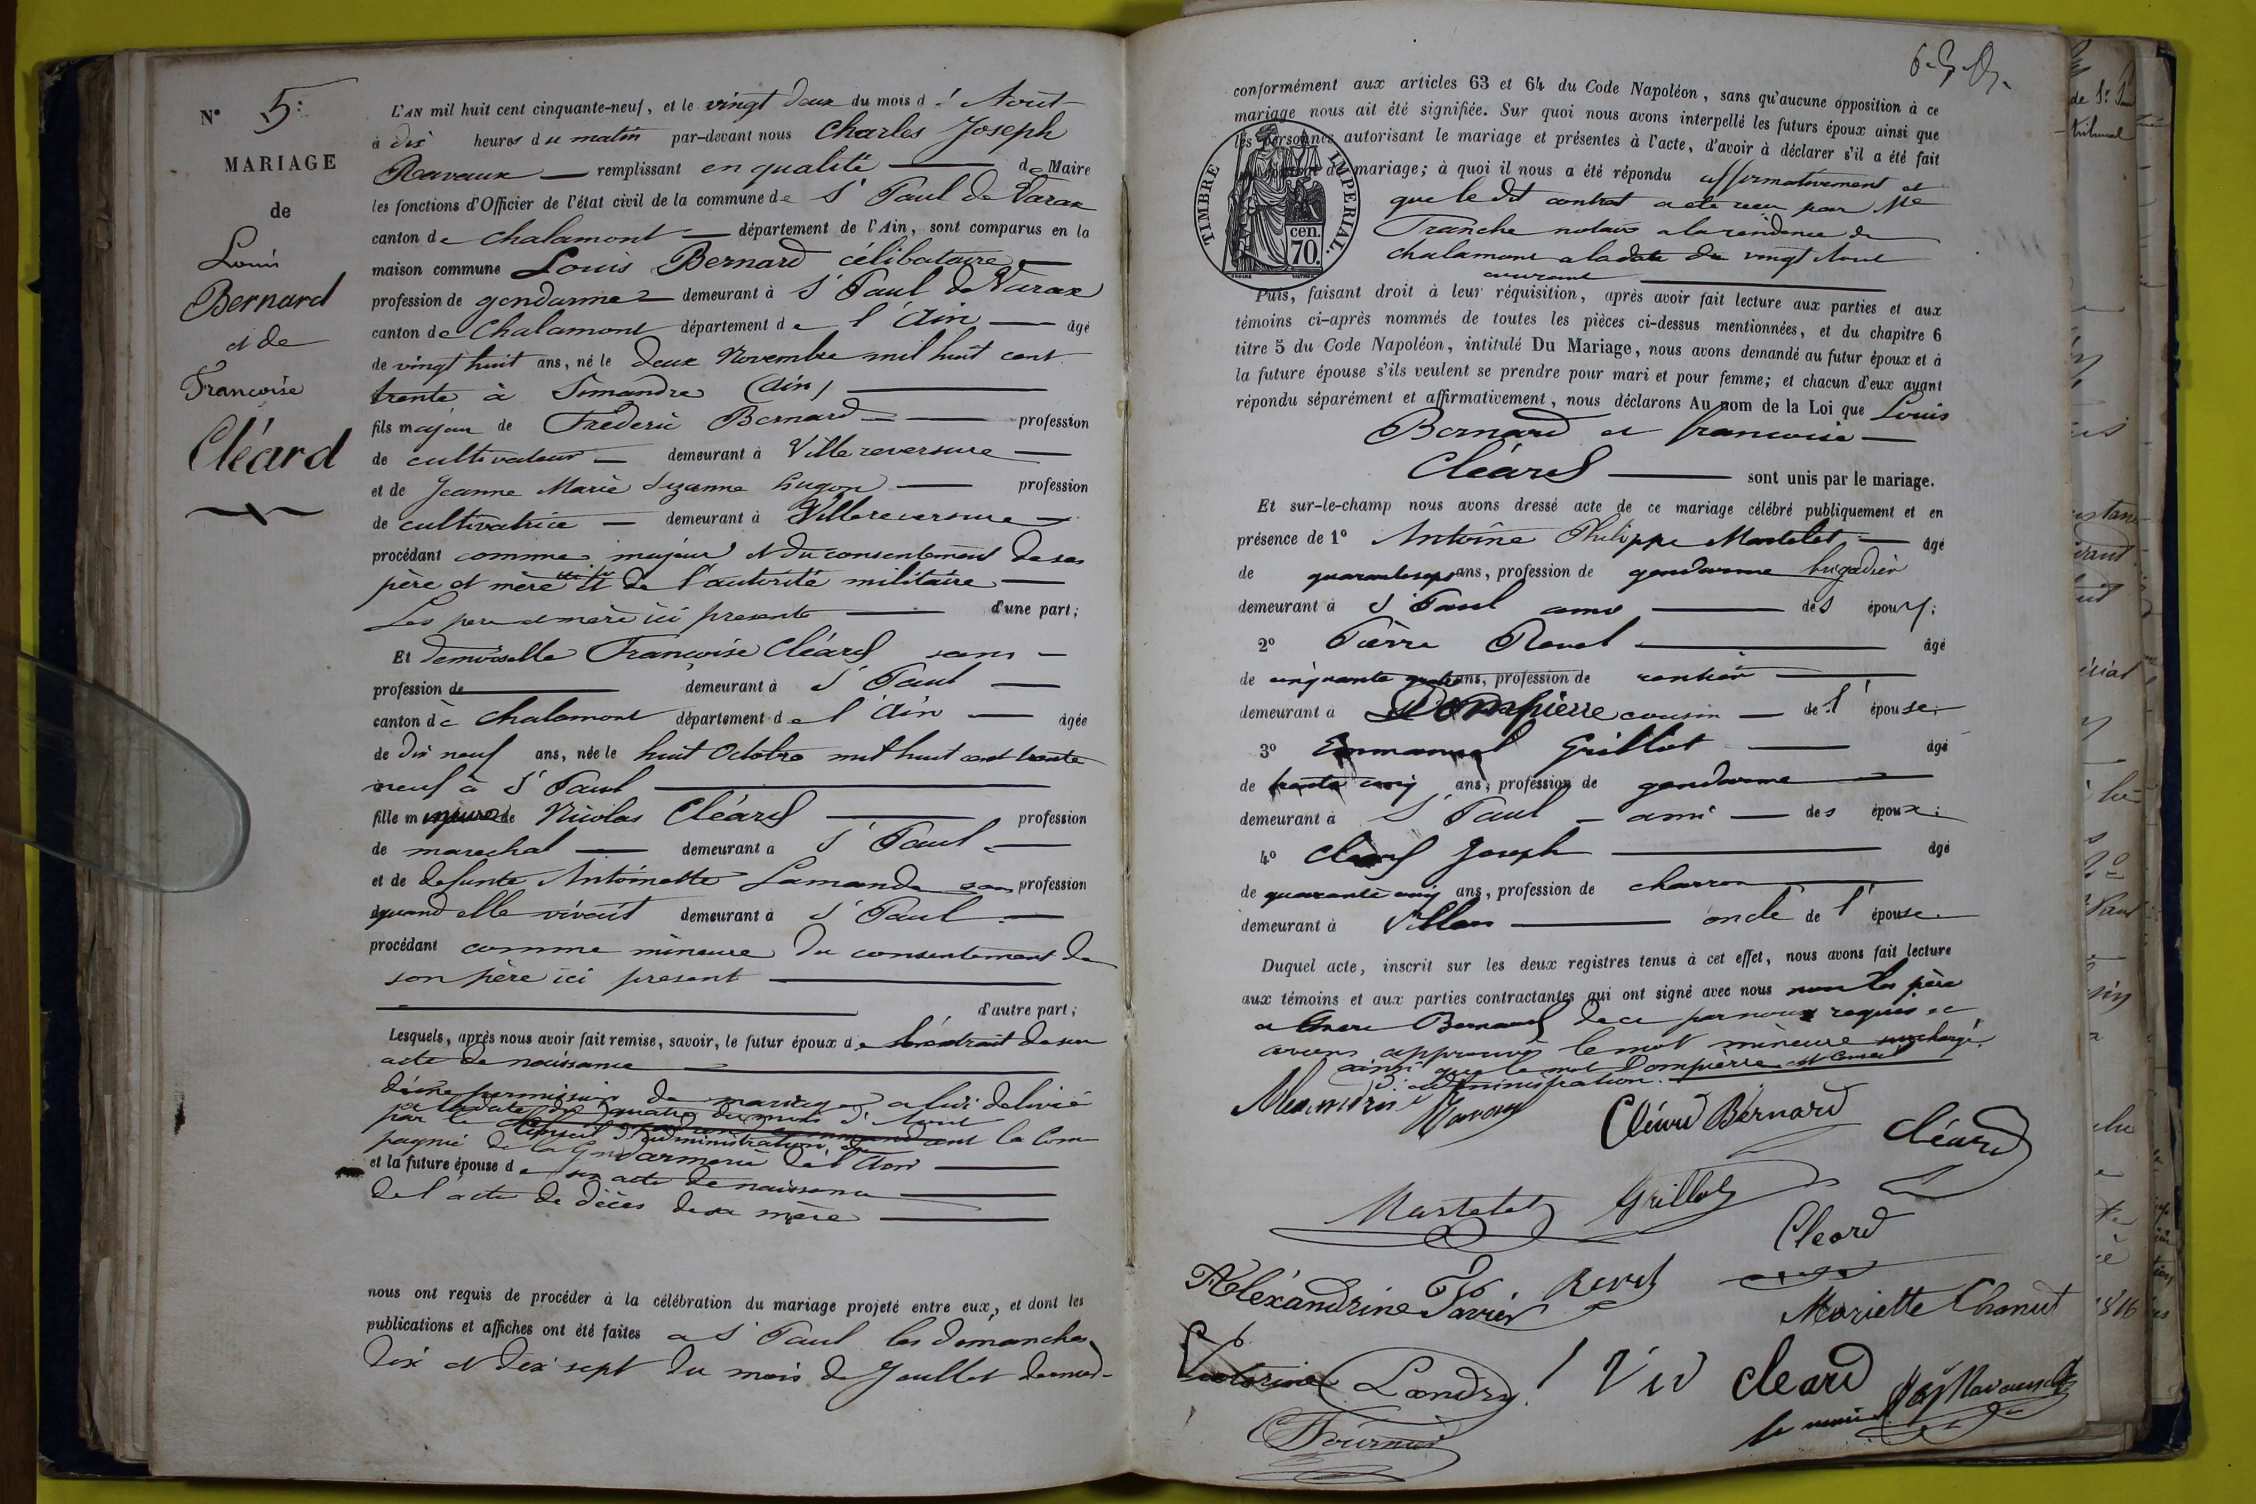 N° 5:
MARIAGE
de
Louis
Bernard
et de
Françoise
Cléard
L'AN mil huit cent cinquante-neuf, et le vingt deux du mois d'Aout
à dix heures du matin par-devant nous Charles Joseph
Ravaux remplissant en qualité de Maire
les fonctions d'Officier de l'état civil de la commune de St Paul de Varax
canton de Chalamont département de l'Ain, sont comparus en la
maison commune Louis Bernard célibataire
profession de gendarme demeurant à St Paul de Varax
canton de Chalamont département de l'Ain âgé
de vingt huit ans, né le deux Novembre mil huit cent
trente à Simandre (Ain)
fils majeur de Frédéric Bernard profession
de cultivateur demeurant à Villereversure
et de Jeanne Marie Suzanne Hugon profession
de cultivatrice demeurant à Villereversure
procédant comme majeur et du consentement de ses
père et mère et de l'autorité militaire
Les père et mère ici présents d'une part;
Et demoiselle Françoise Cléard sans
profession de demeurant à St Paul
canton de Chalamont département de l'Ain âgée
de dix neuf ans, née le huit Octobre mil huit cent trente
neuf à St Paul
fille mineure de Nicolas Cléard profession
de marechal demeurant à St Paul
et de defunte Antoinette Lamande sans profession
quand elle vivait demeurant à St Paul
procédant comme mineure du consentement de
son père ici present
d'autre part;
Lesquels, après nous avoir fait remise, savoir, le futur époux de l'extrait de son
acte de naissance
d'une permission de mariage a lui delivré
à la date du quatre du mois d'Aout
par le Conseil d'administration de la Com
pagnie de la Gendarmerie de l'Ain
et la future épouse de son acte de naissance
de l'acte de décès de sa mère
nous ont requis de procéder à la célébration du mariage projeté entre eux, et dont les
publications et affiches ont été faites a St Paul les dimanches
dix et dix sept du mois de Juillet dernier
conformément aux articles 63 et 64 du Code Napoléon, sans qu'aucune opposition à ce
mariage nous ait été signifiée. Sur quoi nous avons interpellé les futurs époux ainsi que
les personnes autorisant le mariage et présentes à l'acte, d'avoir à déclarer s'il a été fait
contrat de mariage; à quoi il nous a été répondu affirmativement et
que le dit contrat a été reçu par Me
Tranche notaire a la residence de
chalamont a la date du vingt Aout
courant
TIMBRE IMPERIAL.
70 cen.
Puis, faisant droit à leur réquisition, après avoir fait lecture aux parties et aux
témoins ci-après nommés de toutes les pièces ci-dessus mentionnées, et du chapitre 6
titre 5 du Code Napoléon, intitulé Du Mariage, nous avons demandé au futur époux et à
la future épouse s'ils veulent se prendre pour mari et pour femme; et chacun d'eux ayant
répondu séparément et affirmativement, nous déclarons Au nom de la Loi que Louis
Bernard et françoise
Cléard sont unis par le mariage.
Et sur-le-champ nous avons dressé acte de ce mariage célébré publiquement et en
présence de 1° Antoine Philippe Martelet âgé
de quarante sept ans, profession de gendarme brigadier
demeurant à St Paul ami des époux;
2° Pierre Revel âgé
de cinquante quatre ans, profession de rentier
demeurant à Dompierre cousin de l'épouse;
3° Emmanuel Grillot âgé
de trente cinq ans, profession de gendarme
demeurant à St Paul ami des époux;
4° Cléard Joseph âgé
de quarante cinq ans, profession de charron
demeurant à Villars oncle de l'épouse.
Duquel acte, inscrit sur les deux registres tenus à cet effet, nous avons fait lecture
aux témoins et aux parties contractantes qui ont signé avec nous non les père
et mere Bernard de ce par nous requis et
avons approuvés le mot mineure surchargé.
ainsi que le mot Dompierre et Conseil
d'administration.
Cléard Bernard
Cléard
Martelet Grillot
Cleard
Aléxandrine Pavier Revel
Mariette Chanut
Victorine Landry
Cleard
Fournier
le maire Ravaux